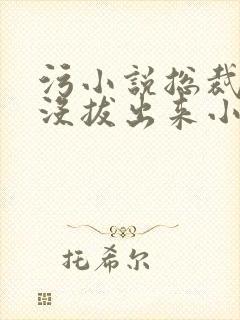 污小说总裁
没拔出来小
托希尔